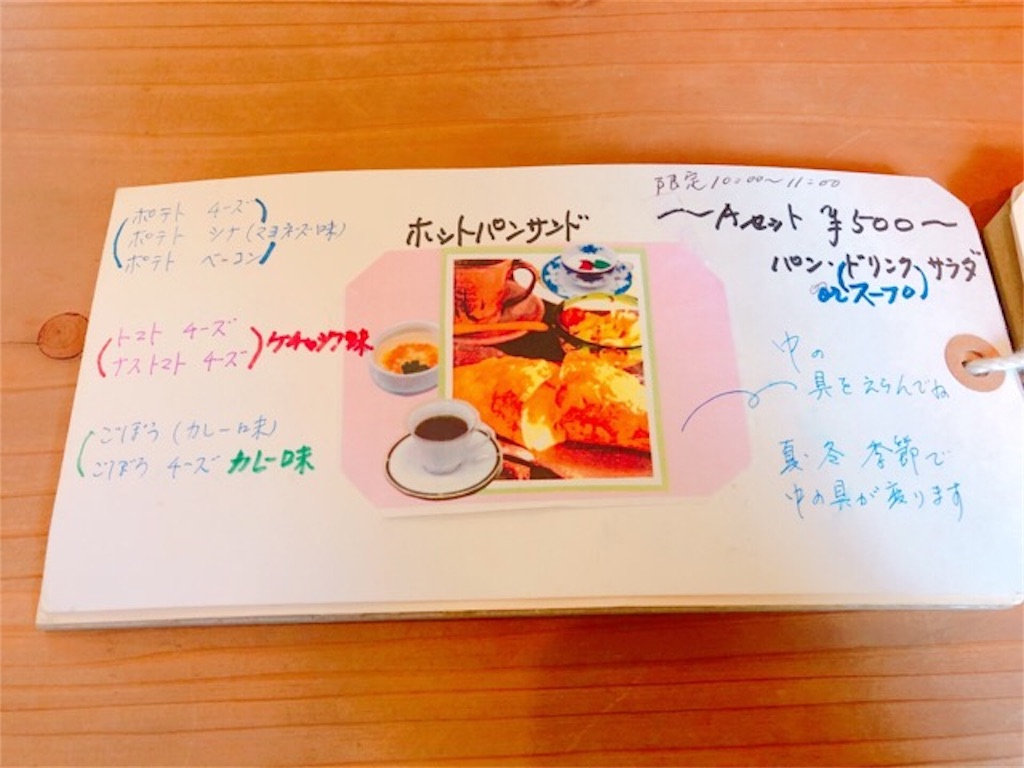 限定10:00～11:00
～Aセット ￥500～
ホットパンサンド
パン・(ドリンク)サラダ
orスープ
ポテト チーズ
ポテト シナ(マヨネーズ味)
ポテト ベーコン
トマト チーズ
ナストマト チーズ
ケチャップ味
ごぼう (カレー味)
ごぼう チーズ カレー味
中の
具をえらんでね
夏・冬 季節で
中の具が変ります